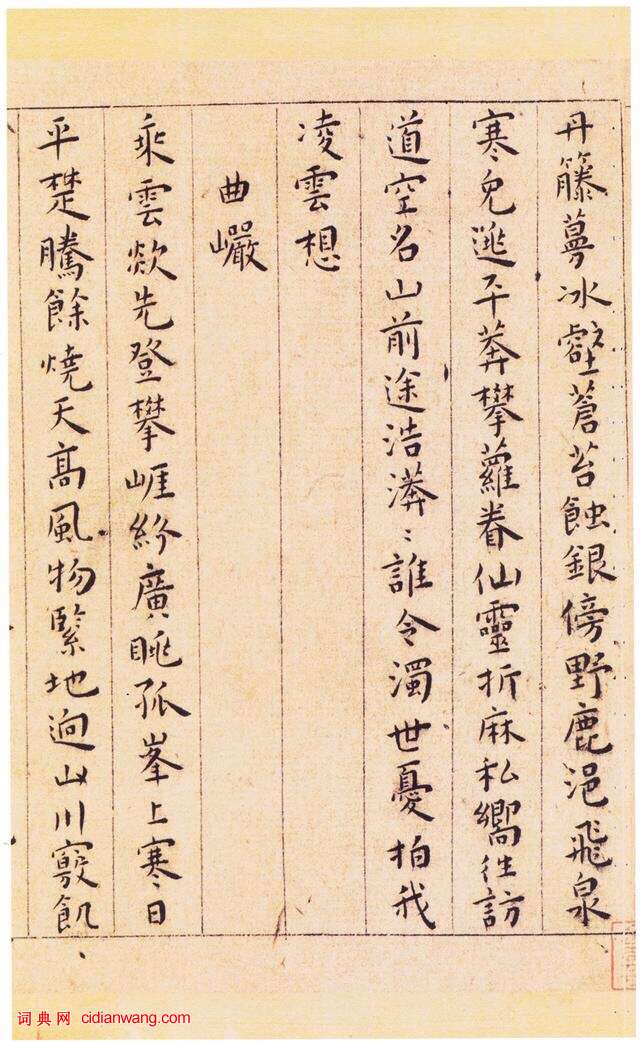 丹籐蔓冰壑蒼苔蝕銀傍野鹿浥飛泉
寒兔逃平莽攀蘿眷仙靈折麻私嚮往訪
道空名山前途浩漭〻誰令濁世憂拍我
凌雲想
曲巖
乘雲欻先登攀崕終廣眺孤峯上寒日
平楚騰餘燒天高風物緊地迥山川竅飢
词典网 cidianwang.com